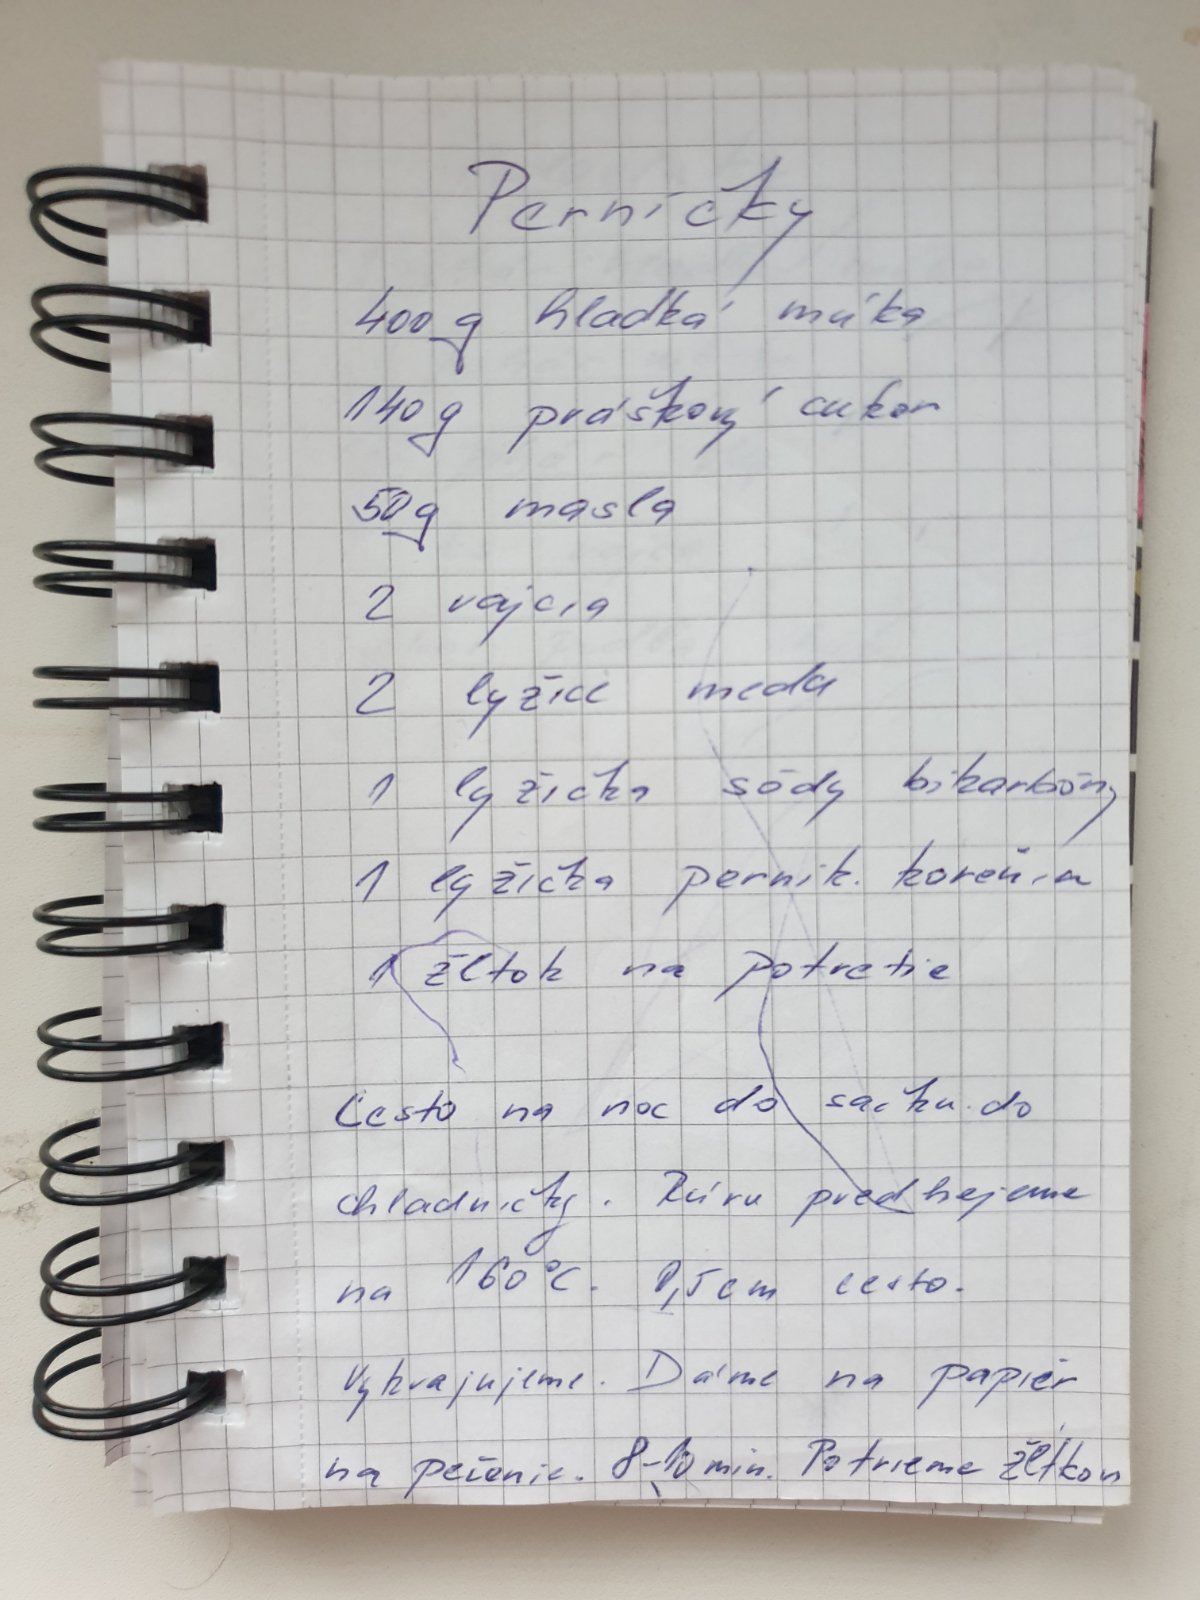 Perníčky
400g hladká múka
140g práškový cukor
50g masla
2 vajcia
2 lyžice medu
1 lyžička sódy bikarbóny
1 lyžička perník. korenia
1 žĺtok na potretie
Cesto na noc do sáčku do
chladničky. Rúru predhejeme
na 160°C. 0,5cm cesto.
Vykrajujeme. Dáme na papier
na pečenie. 8-10 min. Potrieme žĺtkom